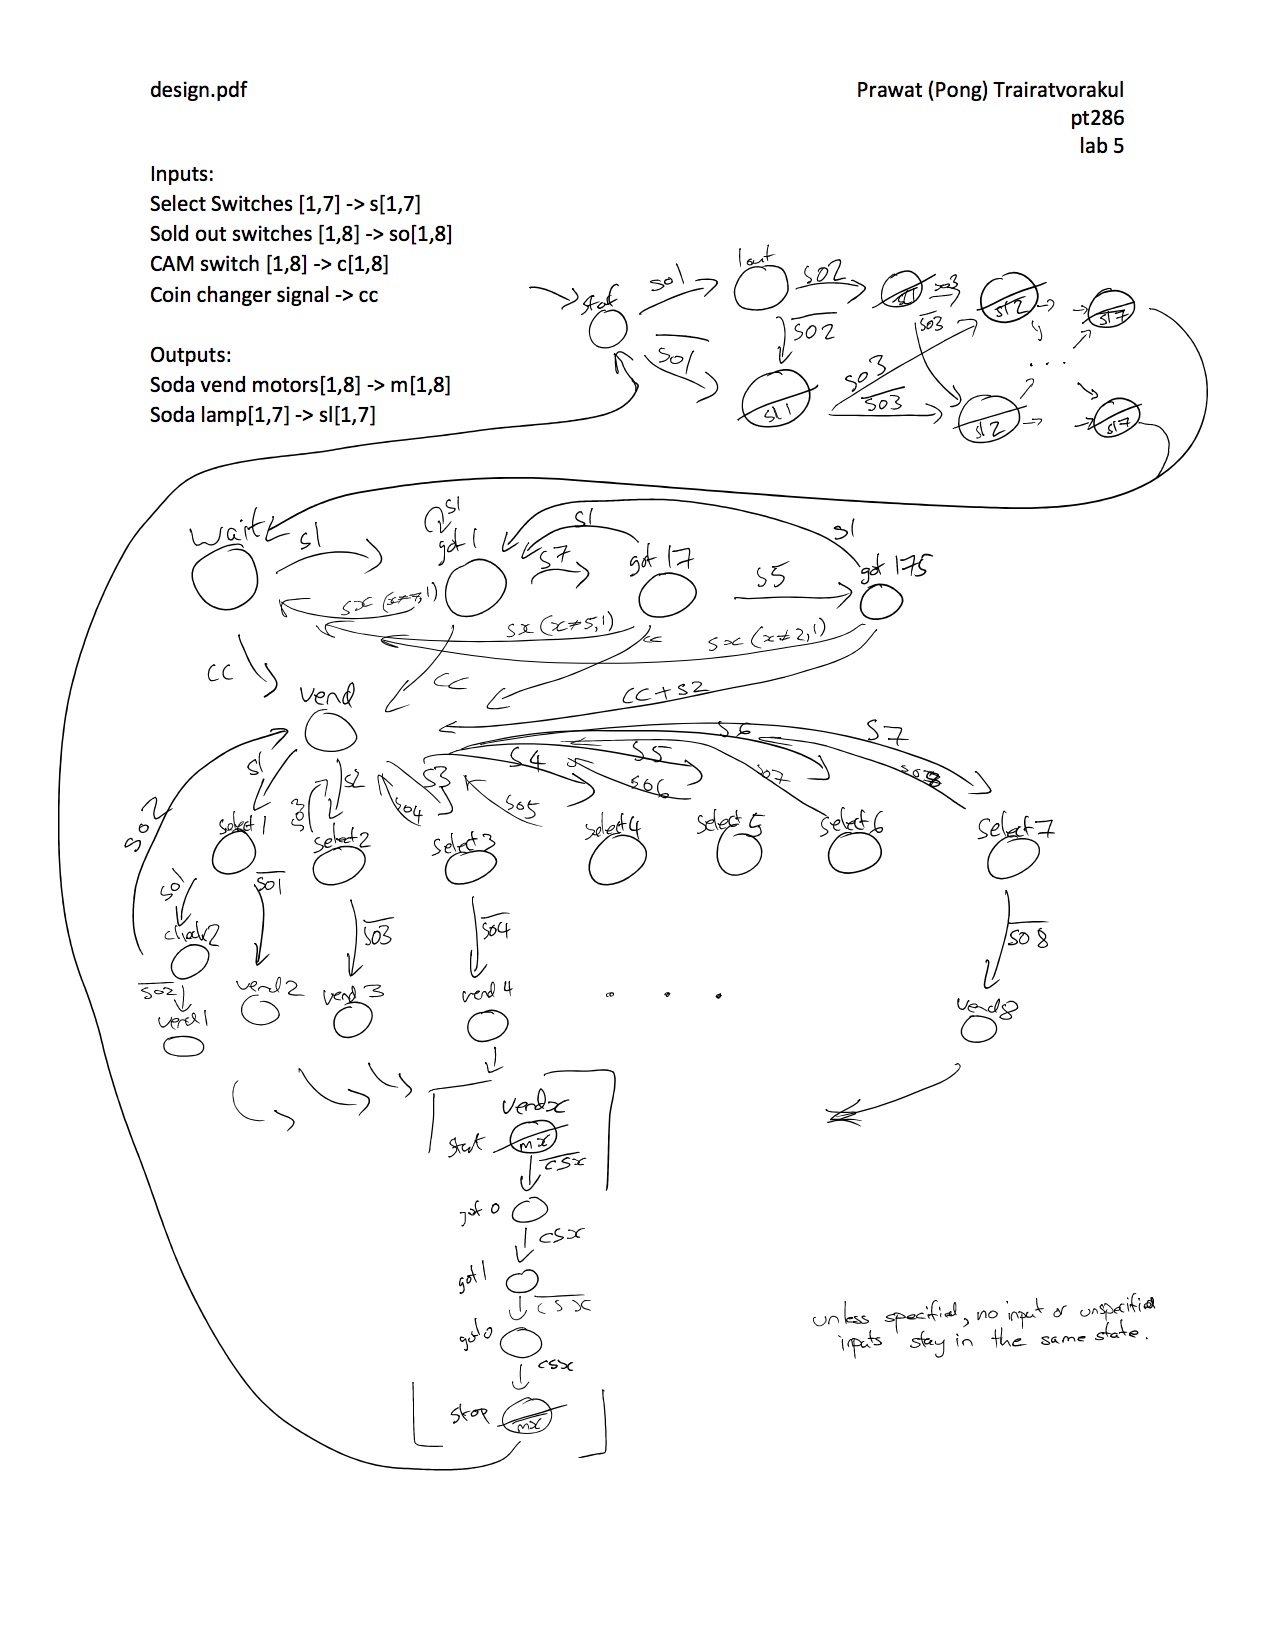 design.pdf
Prawat (Pong) Trairatvorakul
pt286
lab 5
Inputs:
Select Switches [1,7] -> s[1,7]
Sold out switches [1,8] -> so[1,8]
CAM switch [1,8] -> c[1,8]
Coin changer signal -> cc
Outputs:
Soda vend motors[1,8] -> m[1,8]
Soda lamp[1,7] -> sl[1,7]
start so1 1out so2 so3 sl2 sl7
so1 so2 so3
sl1 so3 so3 sl2 sl7
...
wait s1 s1 got 1 s7 s1 got 17 s5 s1 got 175
sx (x≠7,1) sx (x≠5,1) sx (x≠2,1)
cc cc cc cc+s2
vend
s1 s2 s3 s4 s5 s6 s7
so2 so3 so4 so5 so6 so7 so8
select 1 select 2 select 3 select 4 select 5 select 6 select 7
so1 so1 so3 so4 so8
check2
so2
vend 1 vend 2 vend 3 vend 4 . . . vend 8
vend x
start mx
csx
got 0
csx
got 1
csx
got 0
csx
stop mx
unless specified, no input or unspecified
inputs stay in the same state.